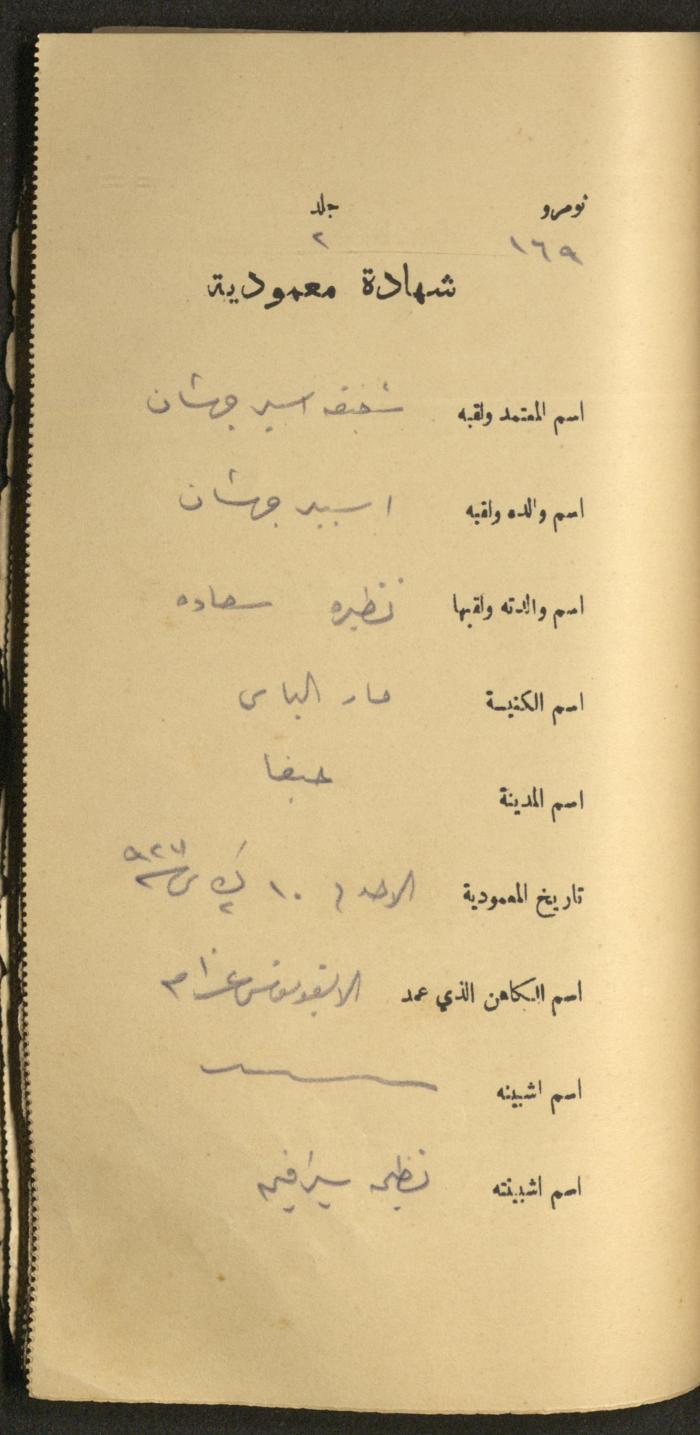 نومرو جلد
١٦٩ ٢
شهادة معمودية
اسم المعتمد ولقبه شفيقه اسبر جهشان
اسم والده ولقبه اسبير جهشان
اسم والدته ولقبها نظيره سعاده
اسم الكنيسة مار الياس
اسم المدينة حيفا
تاريخ المعمودية الاحد ١٠ ك٢
اسم الكاهن الذي عمد
اسم اشبينه
اسم اشبينته